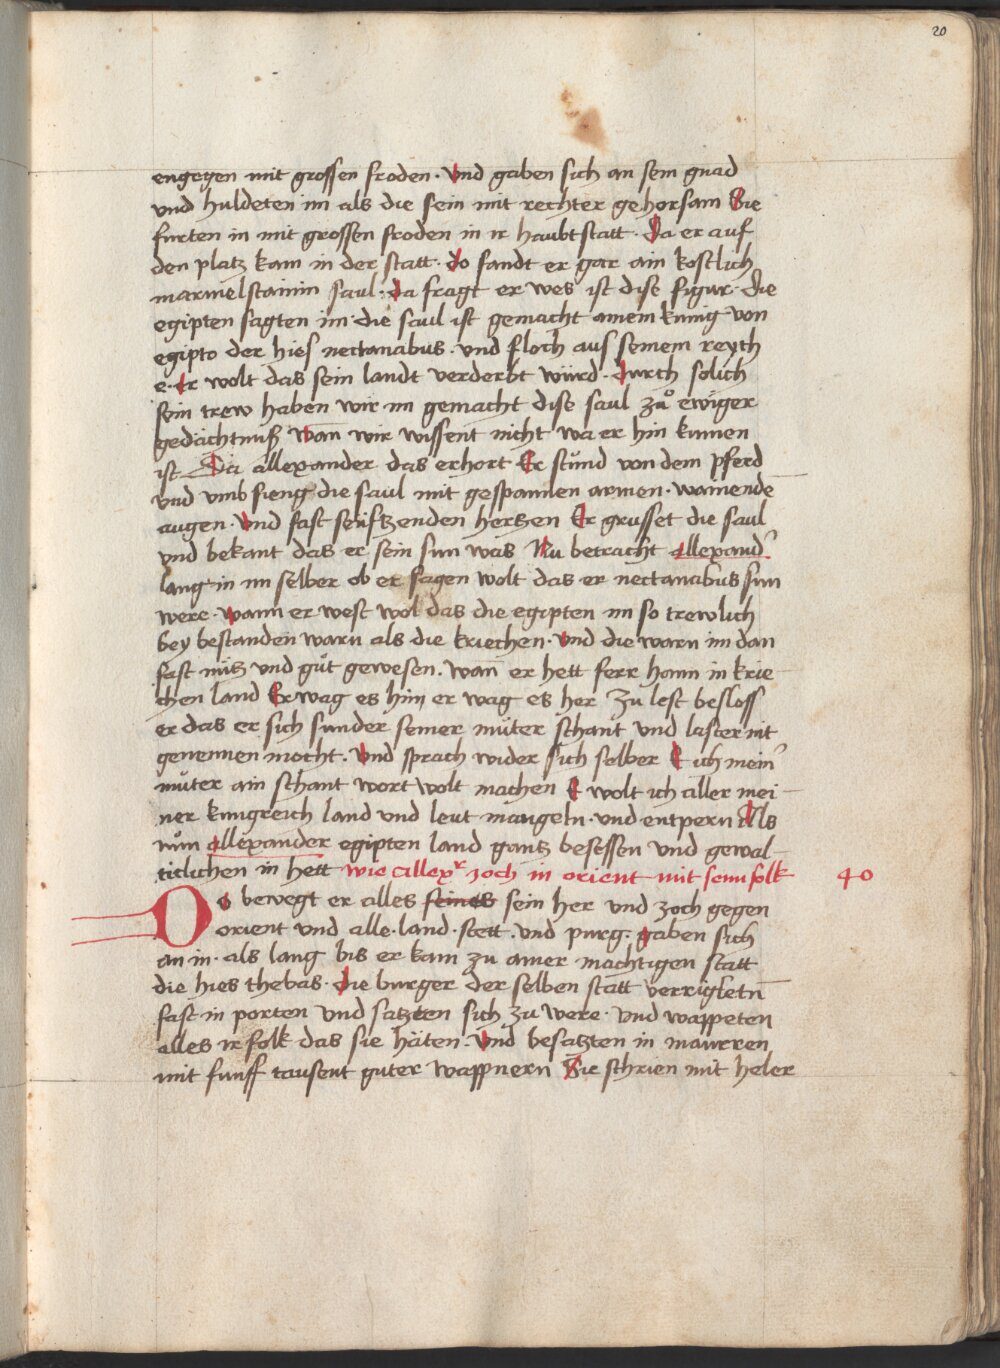 20
engegen mit grossen froden · Vnd gaben sich an sein gnad
vnd huldeten im als die sein mit rechter gehorsam Sie
furten in mit grossen froden in ir haubtstatt · Da er auf
den platz kam in der statt · do fandt er gar ain kostlich
marmelstainin saul · da fragt er wes ist dise figur · die
egipten sagten im · die saul ist gemacht ainem kunig von
egipto der hies nectanabus · vnd floch aus seinem reych
e · Er wolt das sein landt verderbt würd · durch solich
sein trew haben wir im gemacht dise saul zů ewiger
gedächtnuß wan̄ wir wissent nicht wa er hin kumen
ist Da allexander das erhort Er stůnd von dem pferd
vnd vmb fieng die saul mit gespannen armen · wainende
augen · Vnd fast seüftzenden hertzen Er grusset die saul
vnd bekant das er sein sun was Nu betracht allexand'
lang in im selber ob er sagen wolt das er nectanabus sun
were · wann er west wol das die egipten im so trewlich
bey bestanden warn als die kriechen · vnd die warn im dan
fast nütz vnd gůt gewesen · wan̄ er hett ferr haim in krie
chen land Er wag es hin er wag es her Zu lest besloss
er das er sich sunder seiner můter schant vnd laster nit
genennen mocht · Vnd sprach wider sich selber E ich mein'
můter ain schant wort wolt machen E wolt ich aller mei
ner kungreich land vnd leut mangeln · vnd entpern Als
nům allexander egipten land gantz besessen vnd gewal
ticlichen in hett wie allexr zoch in orient mit seim folk 40
Do bewegt er alles seines sein her vnd zoch gegen
orient vnd alle · land · stett · vnd purg · gaben sich
an in · als lang bis er kam zu ainer mächtigen statt
die hies thebas · die burger der selben statt verrigletn̄
fast in porten vnd satzten sich zu were · vnd wappeten
alles ir folk das sie häten · Vnd besatzten in mawrren
mit funff tausent guter wappnern Sie schrien mit heler